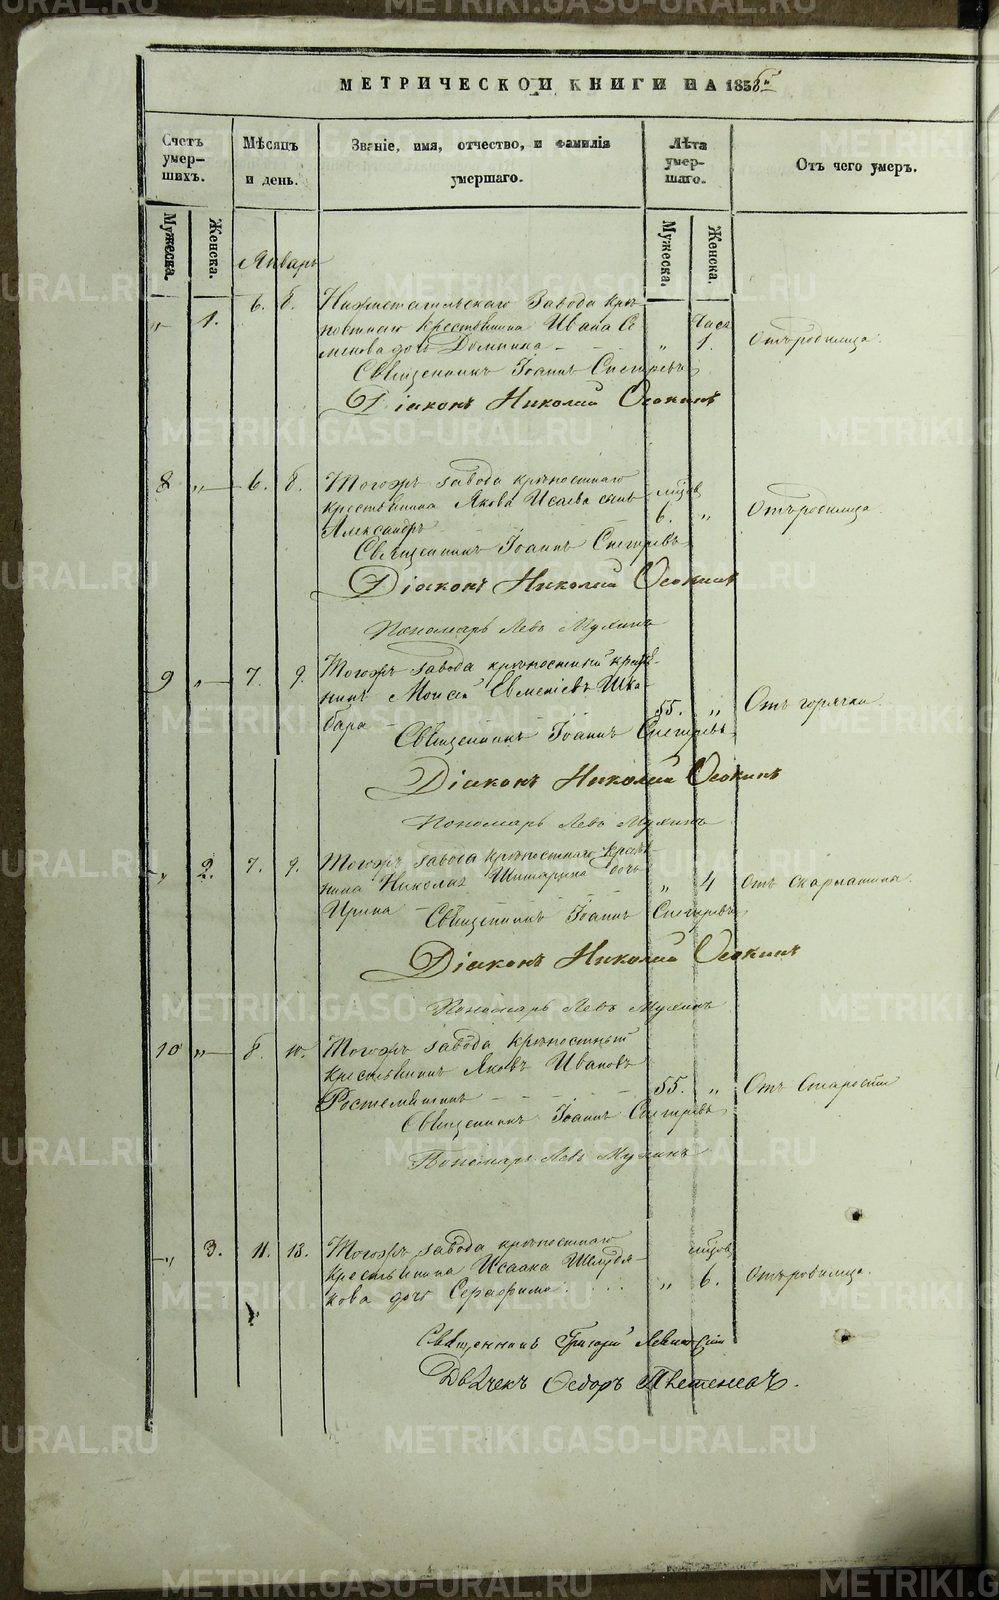 МЕТРИЧЕСКОЙ КНИГИ НА 1858й
Счетъ умер- шихъ.
Мѣсяцъ и день.
Званіе, имя, отчество, и фамилія умершаго.
Лѣта умер- шаго.
Отъ чего умеръ.
Мужеска.
Женска.
Мужеска.
Женска.
Январь
" 1. 6. 8. Нижнетагильскаго Завода крѣ-
постнаго крестьянина Ивана Се
менова дочь Домника - - - " Часъ 1. Отъ родимца.
Священникъ Іоаннъ Снегиревъ
Діаконъ Николай Осокинъ
8 " 6. 8. Тогожъ завода крѣпостнаго
крестьянина Якова Исаева сынъ
Александръ 6. " Отъ родимца
Священникъ Іоаннъ Снегиревъ
Діаконъ Николай Осокинъ
Пономарь Левъ Мухинъ
9 " 7. 9. Тогожъ завода крѣпостный крестья-
нинъ Моисей Евменіевъ Шка-
бара - 55. " Отъ горячки
Священникъ Іоаннъ Снегиревъ
Діаконъ Николай Осокинъ
Пономарь Левъ Мухинъ
" 2. 7. 9. Тогожъ завода крѣпостнаго кресть-
нина Николая дочь
Ирина " 4 Отъ скарлатины.
Священникъ Іоаннъ Снегиревъ
Діаконъ Николай Осокинъ
Пономарь Левъ Мухинъ
10 " 8. 10. Тогожъ завода крѣпостный
крестьянинъ Яковъ Ивановъ
55. " Отъ Старости
Священникъ Іоаннъ Снегиревъ
Пономарь Левъ Мухинъ
" 3. 11. 13. Тогожъ завода крѣпостнаго
крестьянина Исаака Шелудя-
кова дочь Серафима . . . . " 6. Отъ родимца.
Священникъ Григорій
Ѳедоръ
METRIKI.GASO-URAL.RU